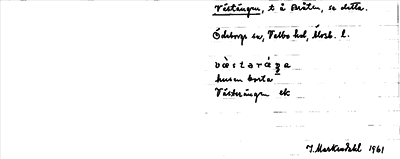 Västängen, t å Bråten, se detta.
Ödeborgs sn, Valbo hd, Älvsb. l.
vàstəráŋa
husen borta
Västerängen ek
J. Markendahl 1961